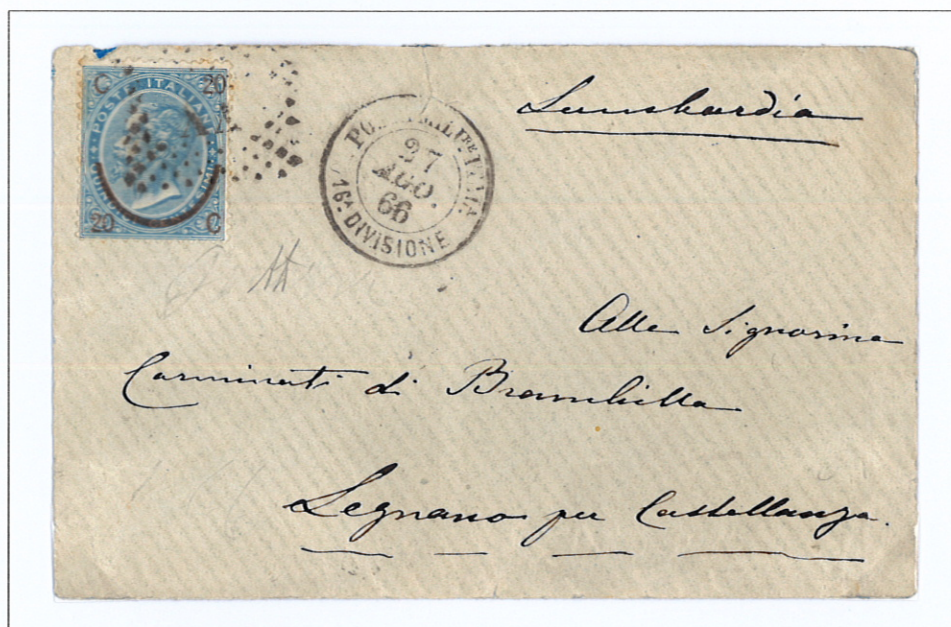 C 20
POSTE ITALIANE
20 C
27
AGO.
66
16ª DIVISIONE
Lombardia
Alla Signorina
Carminati di Brambilla
Legnano per Castellanza.